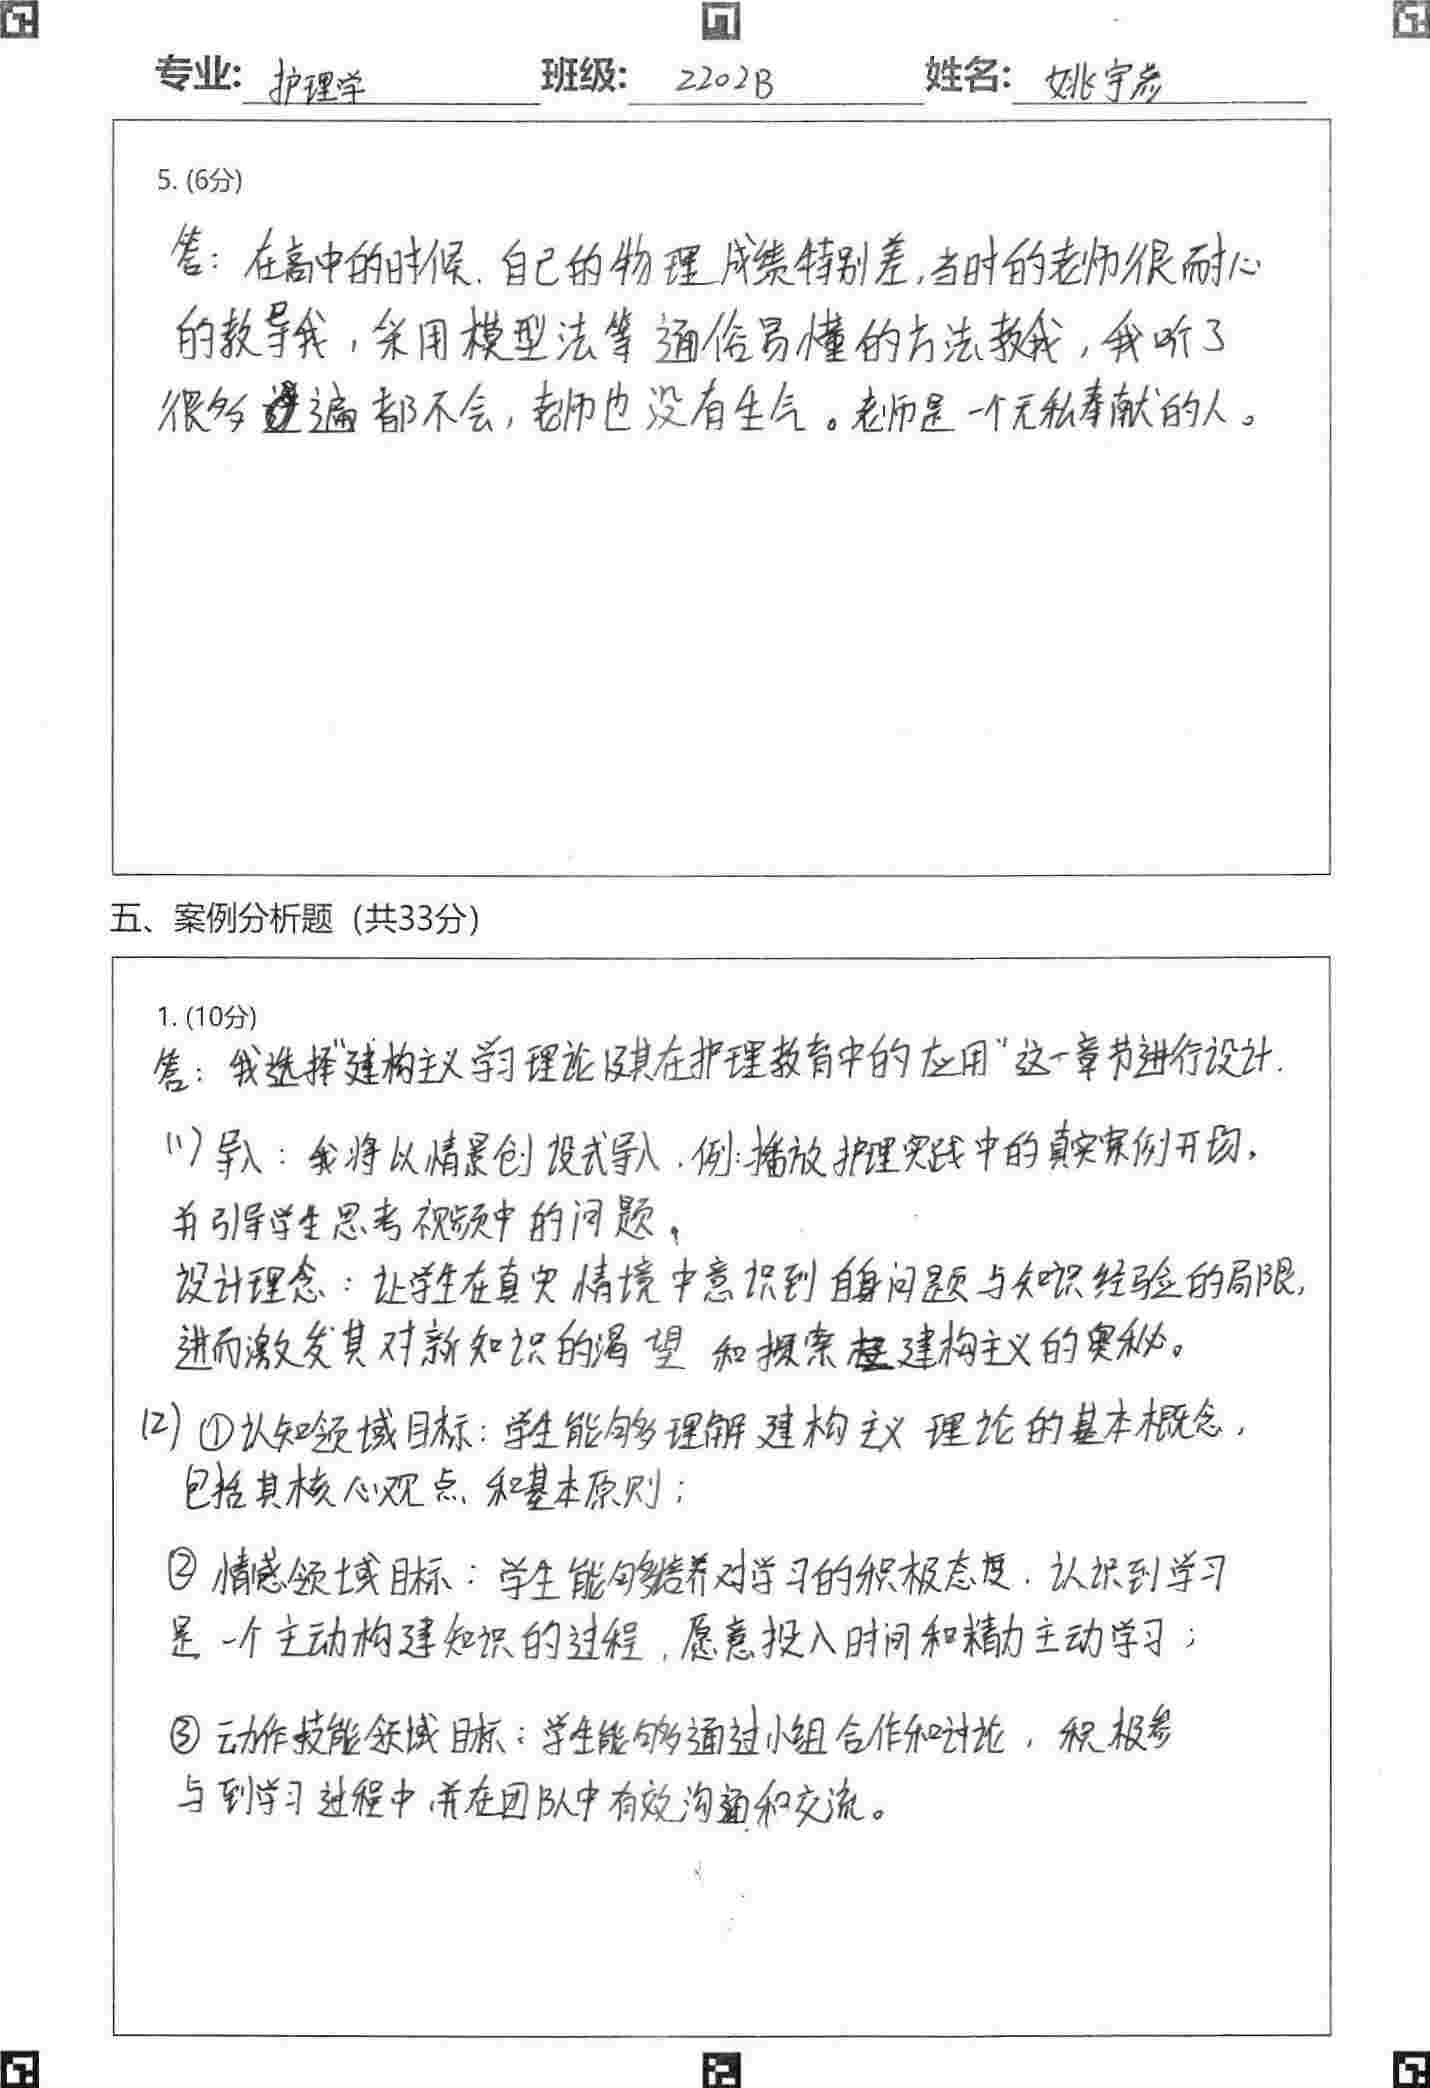 专业: 护理学 班级: 2202B 姓名: 姚宇彦
5. (6分)
答：在高中的时候，自己的物理成绩特别差，当时的老师很耐心
的教导我，采用模型法等通俗易懂的方法教我，我听了
很多遍都不会，老师也没有生气。老师是一个无私奉献的人。
五、案例分析题（共33分）
1. (10分)
答：我选择"建构主义学习理论及其在护理教育中的应用"这一章节进行设计.
(1) 导入：我将以情景创设式导入，例：播放护理实践中的真实案例开场，
并引导学生思考视频中的问题。
设计理念：让学生在真实情境中意识到自身问题与知识经验的局限，
进而激发其对新知识的渴望和探索建构主义的奥秘。
(2) ①认知领域目标：学生能够理解建构主义理论的基本概念，
包括其核心观点和基本原则；
②情感领域目标：学生能够培养对学习的积极态度，认识到学习
是一个主动构建知识的过程，愿意投入时间和精力主动学习；
③动作技能领域目标：学生能够通过小组合作和讨论，积极参
与到学习过程中，并在团队中有效沟通和交流。